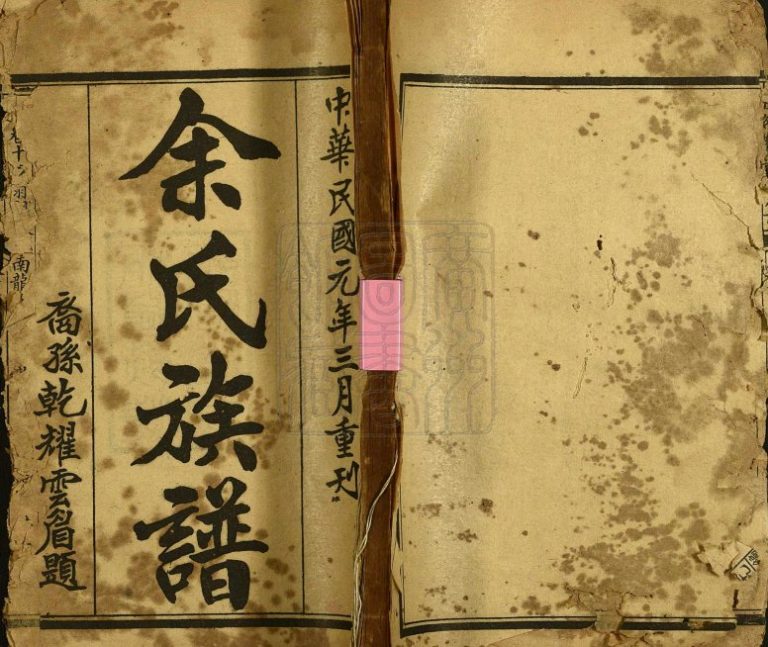 中華民國元年三月重刋
余氏族譜
裔孫乾耀雲眉題
南龍